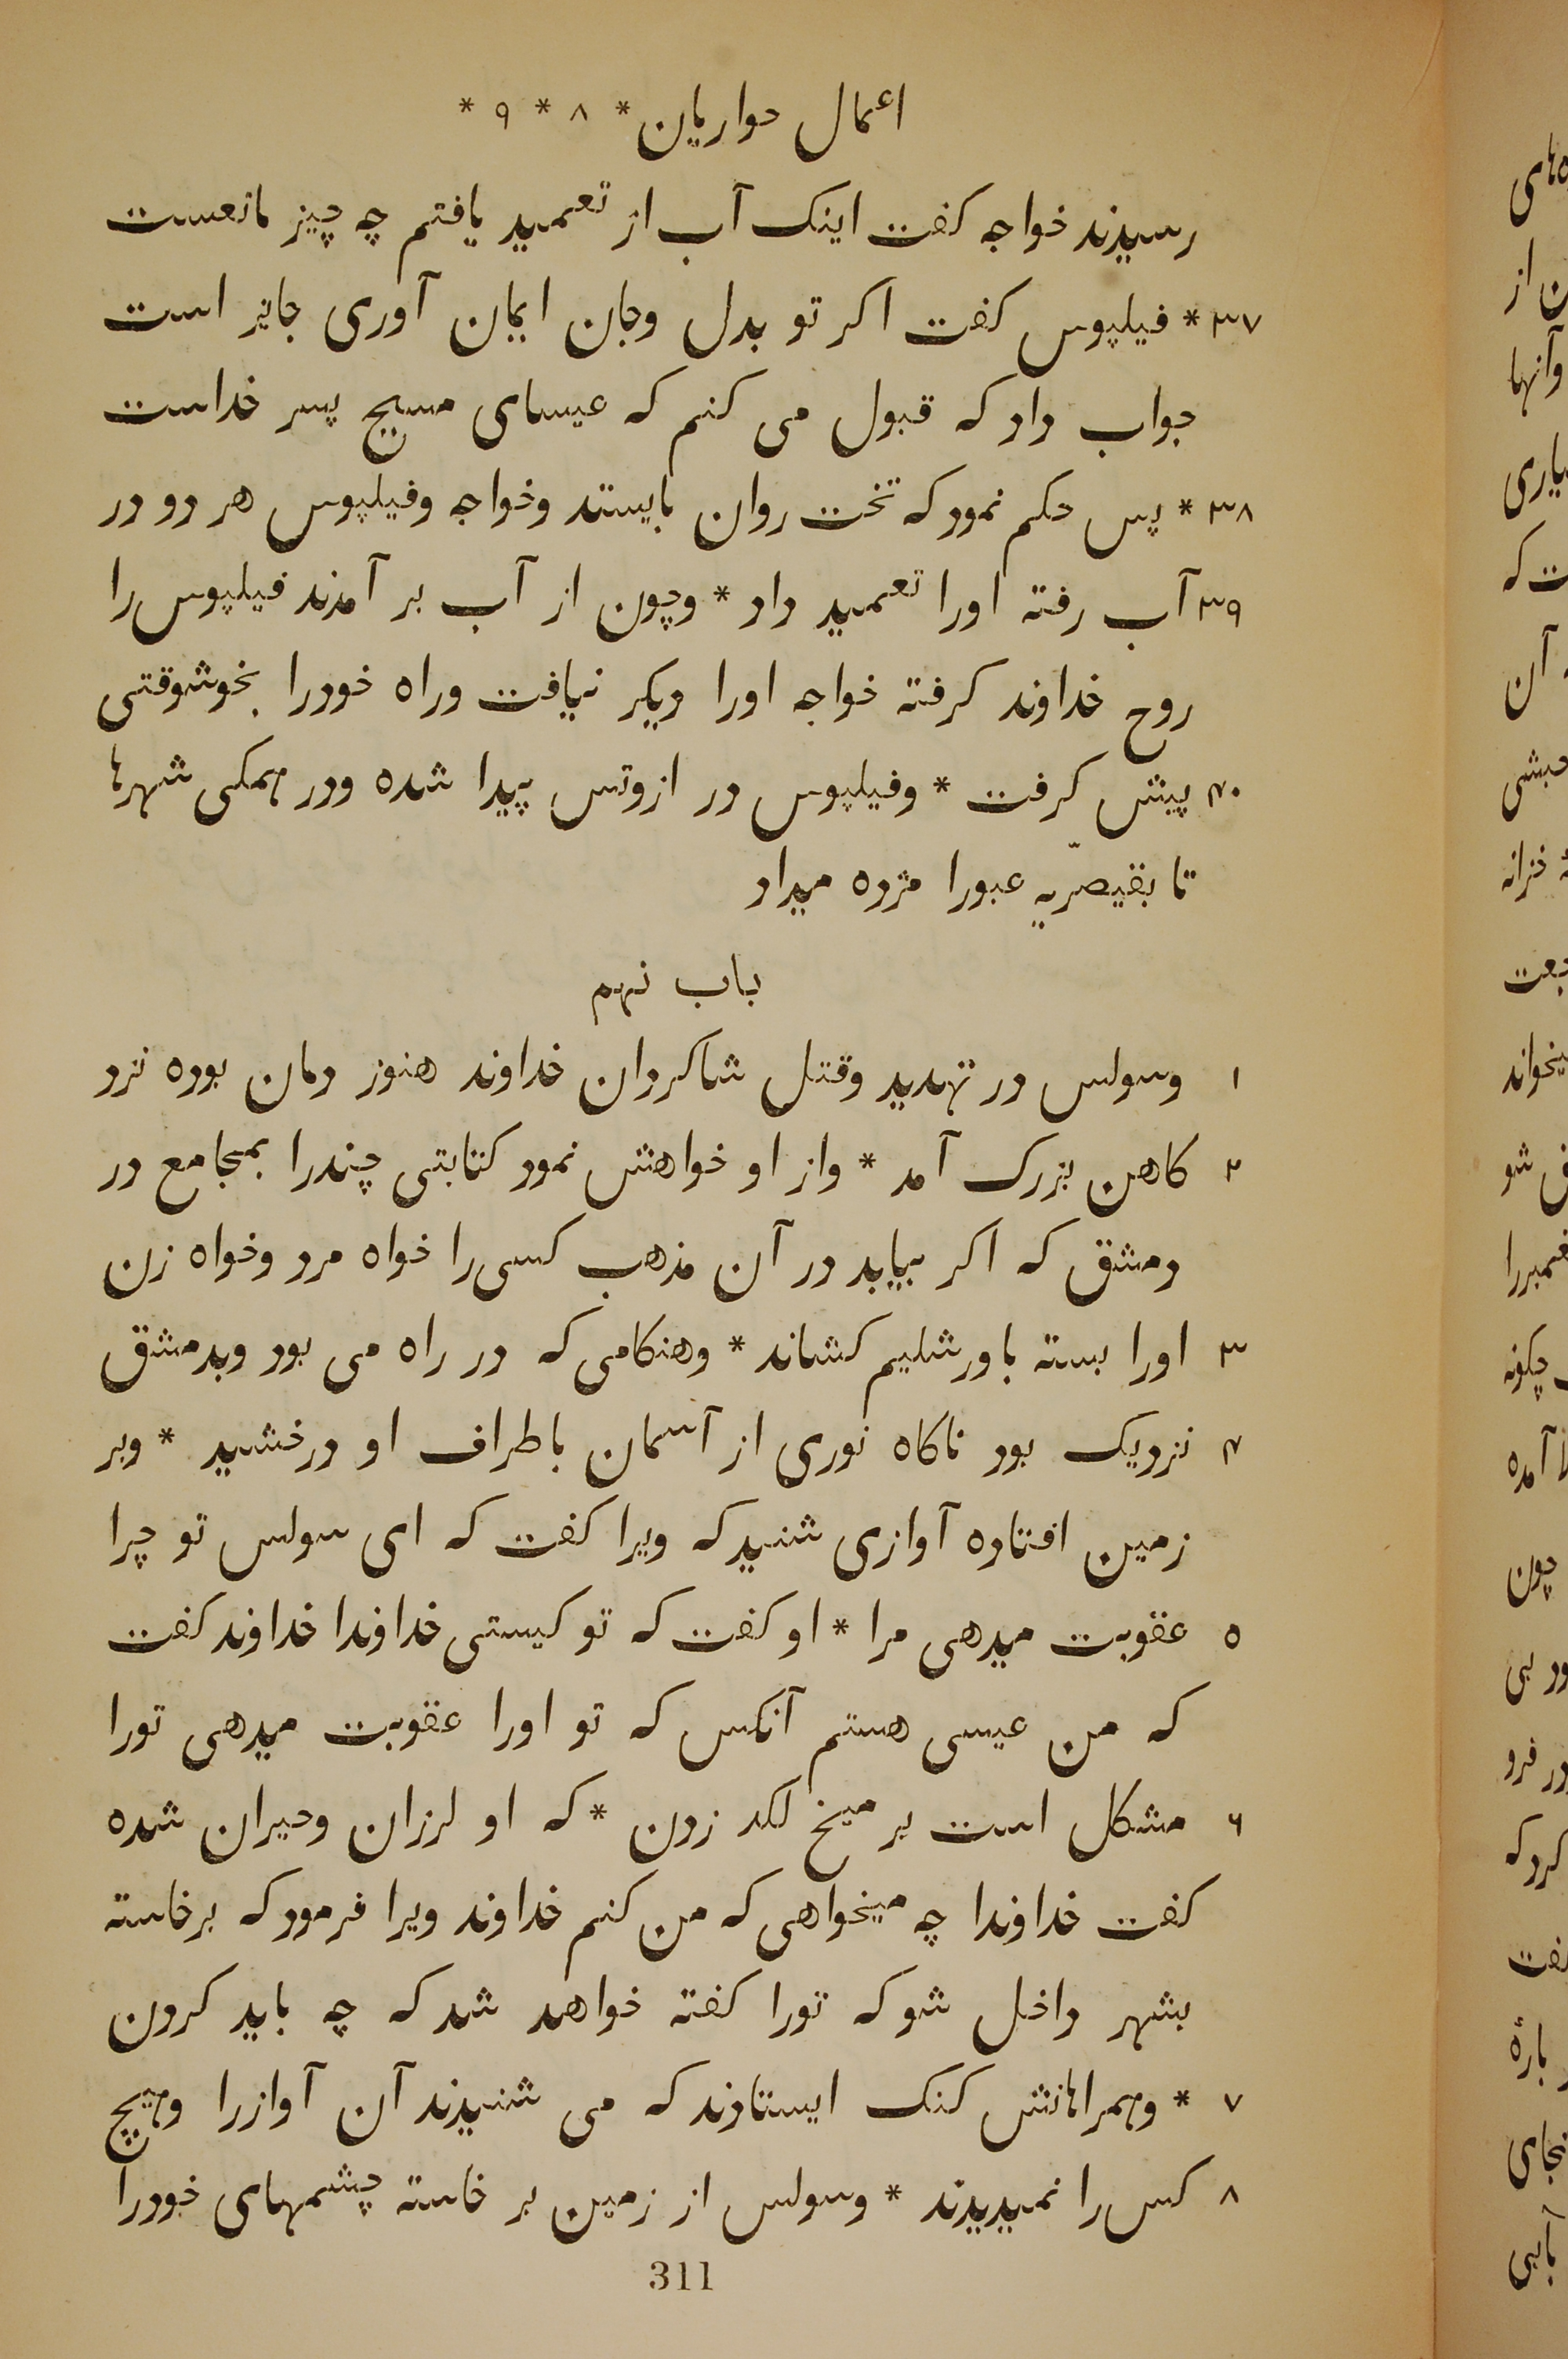 اعمال حواریان * ۸ * ۹ *
رسیدند خواجه کفت اینک آب از تعمید یافتم چه چیز مانعست
۳۷ * فیلپوس کفت اکر تو بدل وجان ایمان آوری جایز است
جواب داد که قبول می کنم که عیسای مسیح پسر خداست
۳۸ * پس حکم نمود که تخت روان بایستد وخواجه وفیلپوس هر دو در
۳۹ آب رفته اورا تعمید داد * وچون از آب بر آمدند فیلپوس را
روح خداوند کرفته خواجه اورا دیکر نیافت وراه خودرا بخوشوقتی
۴۰ پیش کرفت * وفیلپوس در ازوتس پیدا شده ودر همکی شهرها
تا بقیصریّه عبورا مژده میداد
باب نهم
۱ وسولس در تهدید وقتل شاکردان خداوند هنوز دمان بوده نزد
۲ کاهن بزرک آمد * واز او خواهش نمود کتابتی چندرا بمجامع در
دمشق که اکر بیابد در آن مذهب کسی را خواه مرد وخواه زن
۳ اورا بسته باورشلیم کشاند * وهنکامی که در راه می بود وبدمشق
۴ نزدیک بود ناکاه نوری از آسمان باطراف او درخشید * وبر
زمین افتاده آوازی شنید که ویرا کفت که ای سولس تو چرا
۵ عقوبت میدهی مرا * او کفت که تو کیستی خداوندا خداوند کفت
که من عیسی هستم آنکس که تو اورا عقوبت میدهی تورا
۶ مشکل است بر میخ لکد زدن * که او لرزان وحیران شده
کفت خداوندا چه میخواهی که من کنم خداوند ویرا فرمود که برخاسته
بشهر داخل شو که تورا کفته خواهد شد که چه باید کردن
۷ * وهمراهانش کنک ایستادند که می شنیدند آن آوازرا وهیچ
۸ کس را نمیدیدند * وسولس از زمین بر خاسته چشمهای خودرا
311